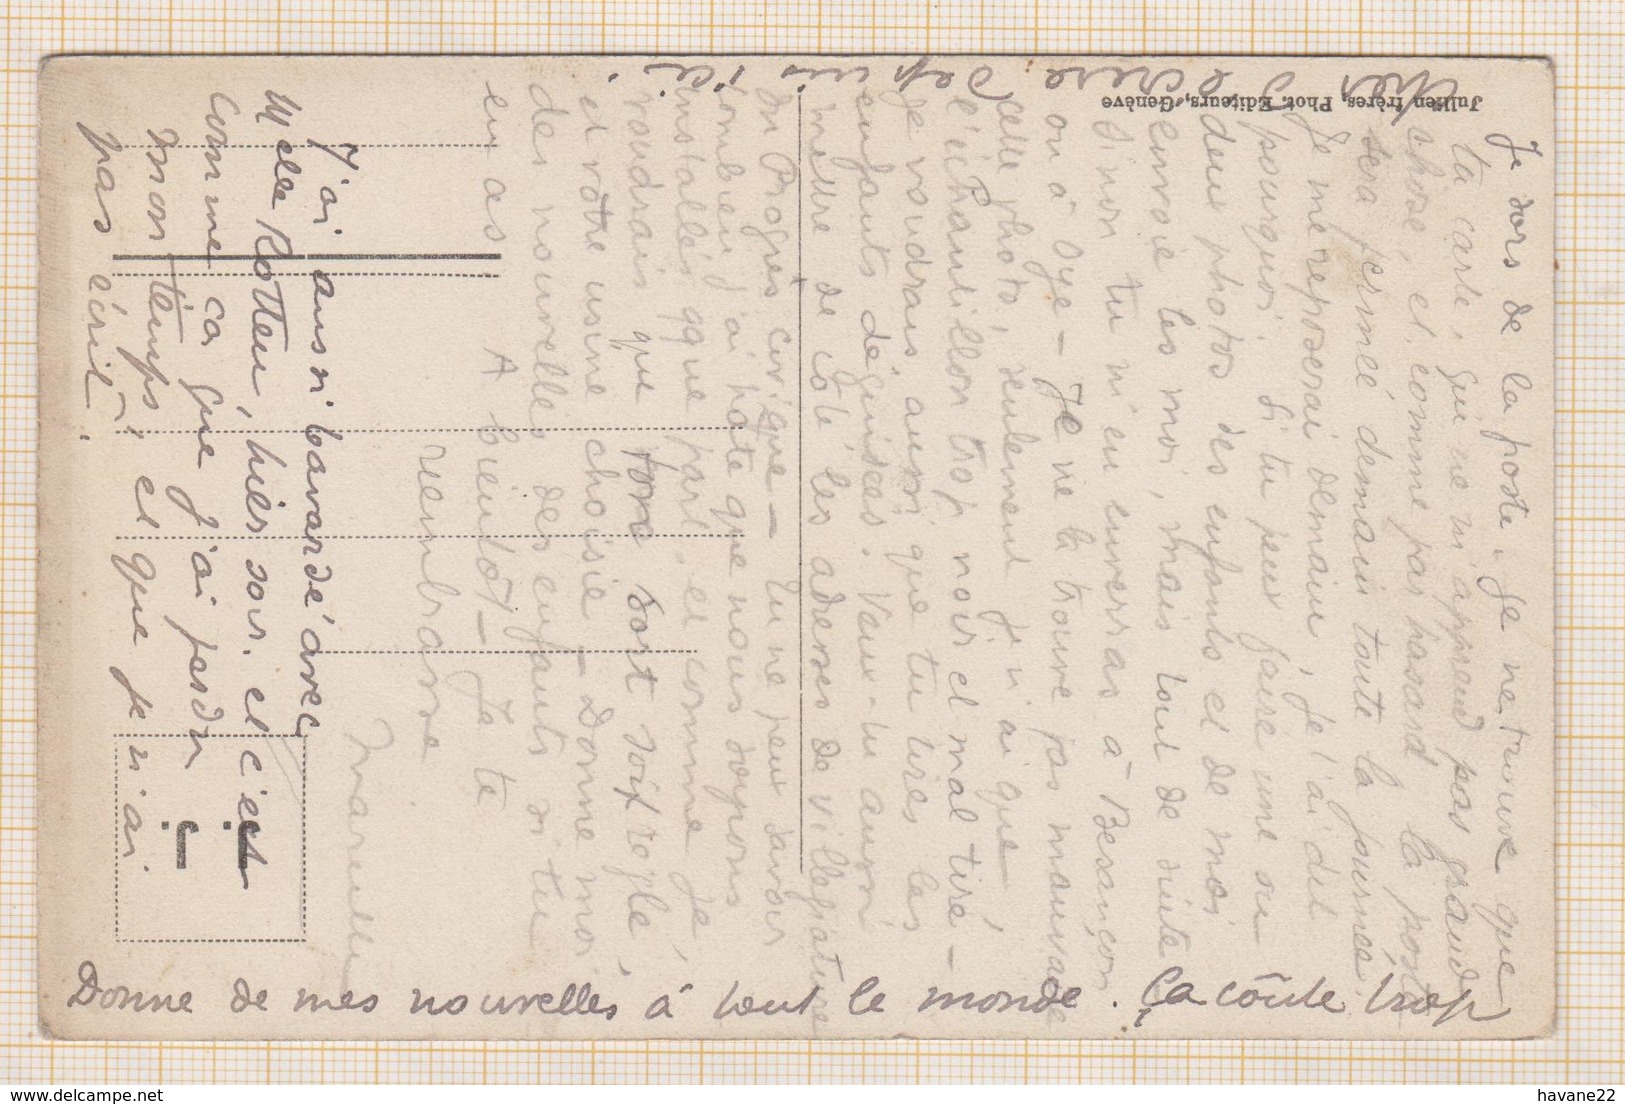 Je sors de la poste. Je ne trouve que
ta carte, qui ne m'apprend pas grande
chose, et comme par hasard la poste
sera fermée demain toute la journée.
Je me reposerai demain, je t'ai dit
pourquoi. Si tu peux faire une ou
deux photos des enfants et de moi
envoie les moi, mais tout de suite
Sinon tu m'en enverras à Besançon
ou à Oye - Je ne la trouve pas mauvaise
cette photo, seulement je n'ai que
l'échantillon trop noir et mal tiré -
Je voudrais aussi que tu tires les
enfants déguisées. Veux-tu aussi
mettre de côté les adresses de villégiature
du Progrès civique - Tu ne peux savoir
combien j'ai hâte que nous soyons
installés qque part, et comme je
voudrais que ton sort soit réglé,
et votre usine choisie - Donne moi
des nouvelles des enfants si tu
en as
A bientôt - Je te
réembrasse
Marcelle
J'ai aussi bavardé avec
Melle Rotteu, hier soir. et c'est
comme ca que j'ai perdu
mon temps; et que je n'ai
pas écrit.
Donne de mes nouvelles à tout le monde. Ça coûte trop
cher d'écrire depuis ici.
Jullien frères, Phot. Editeurs, Genève
J. J.
havane22